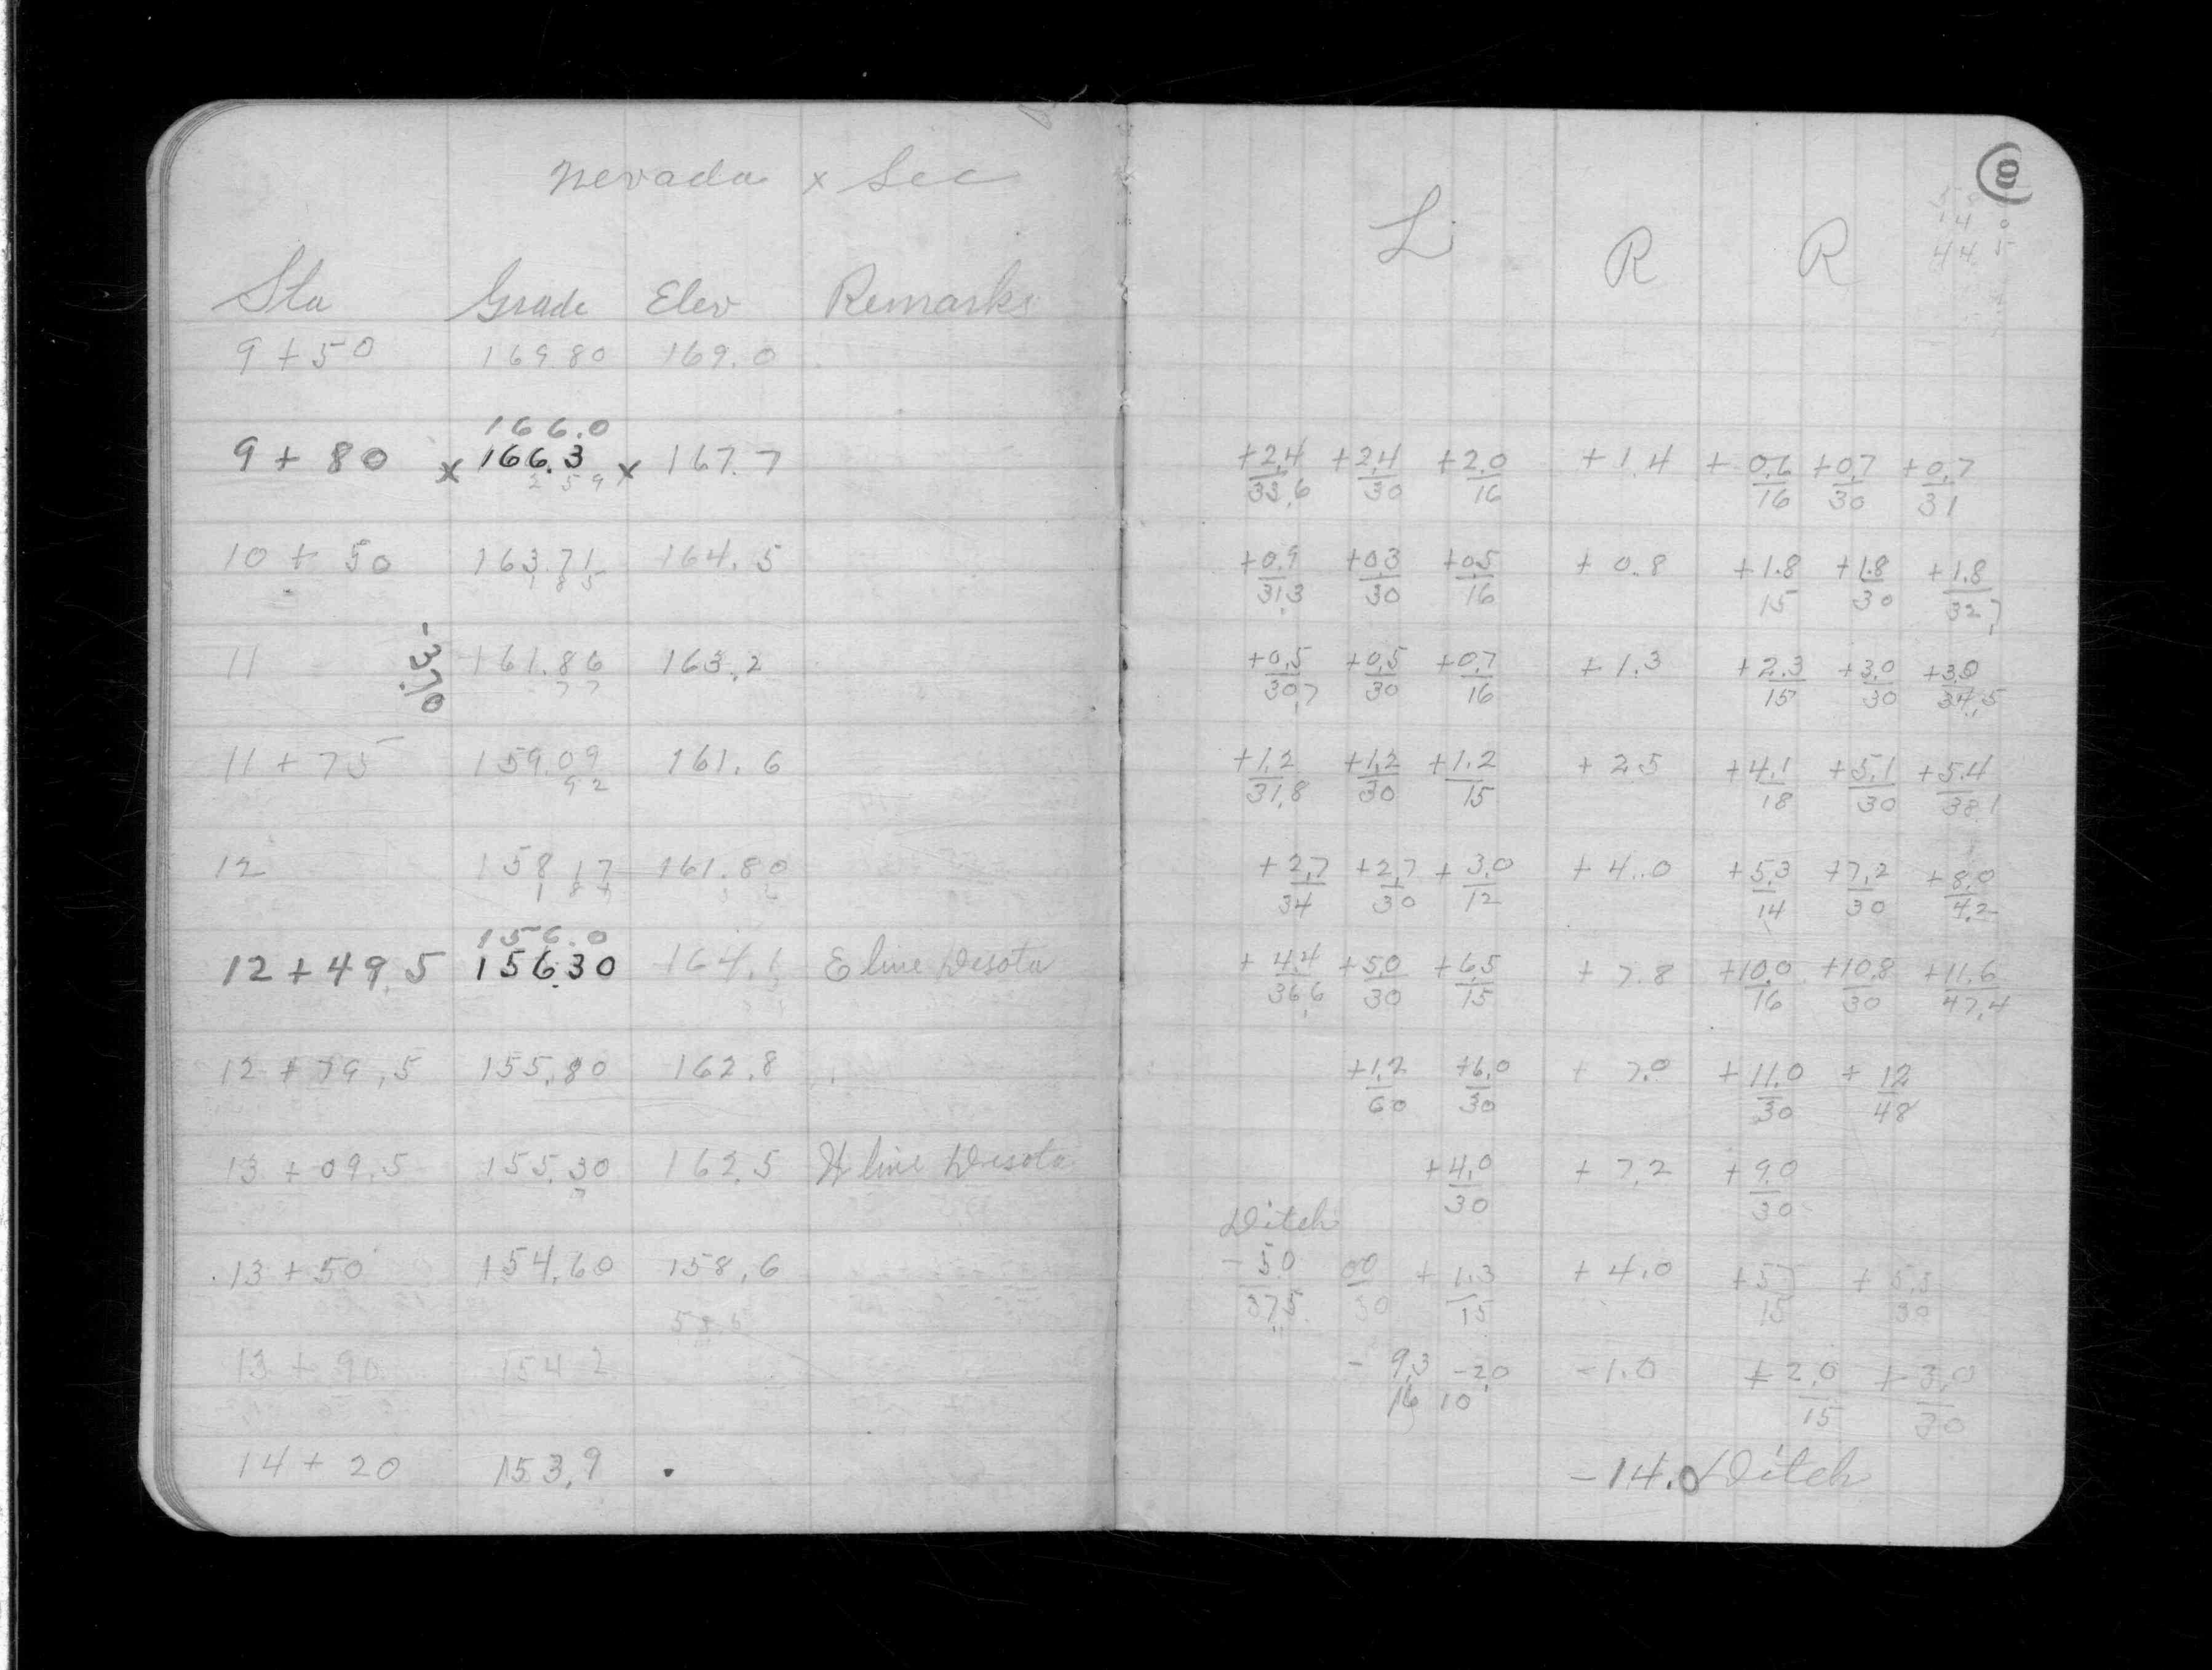 nevada x Sec
Sta Grade Elev Remarks
9+50 169.80 169.0
166.0
9+80 x 166.3 x 167.7
2 5 9
10+50 163.71 164.5
1 8 5
11 161.86 163.2
7 7
-3.70
11+75 159.09 161.6
9 2
12 158.17 161.80
1 8 7
156.0
12+49.5 156.30 164.1 E line Desota
12+79.5 155.80 162.8
13+09.5 155.30 162.5 W line Desota
13+50 154.60 158.6
58.6
13+90 154.2
14+20 153.9
8
L R R
44 5
+2.4 +2.4 +2.0 +1.4 +0.6 +0.7 +0.7
33.6 30 16 16 30 31
+0.9 +0.3 +0.5 +0.8 +1.8 +1.8 +1.8
31.3 30 16 15 30 32.7
+0.5 +0.5 +0.7 +1.3 +2.3 +3.0 +3.0
30.7 30 16 15 30 34.5
+1.2 +1.2 +1.2 +2.5 +4.1 +5.1 +5.4
31.8 30 15 18 30 38.1
+2.7 +2.7 +3.0 +4.0 +5.3 +7.2 +8.0
34 30 12 14 30 42
+4.4 +5.0 +6.5 +7.8 +10.0 +10.8 +11.6
36.6 30 15 16 30 47.4
+1.2 +6.0 + 7.0 +11.0 + 12
60 30 30 48
+4.0 +7.2 +9.0
30 30
Ditch
-5.0 00 +1.3 +4.0 +5.7 +5.5
37.5 30 15 15 30
-9.3 -2.0 -1.0 +2.0 +3.0
16 10 15 30
-14.0 Ditch